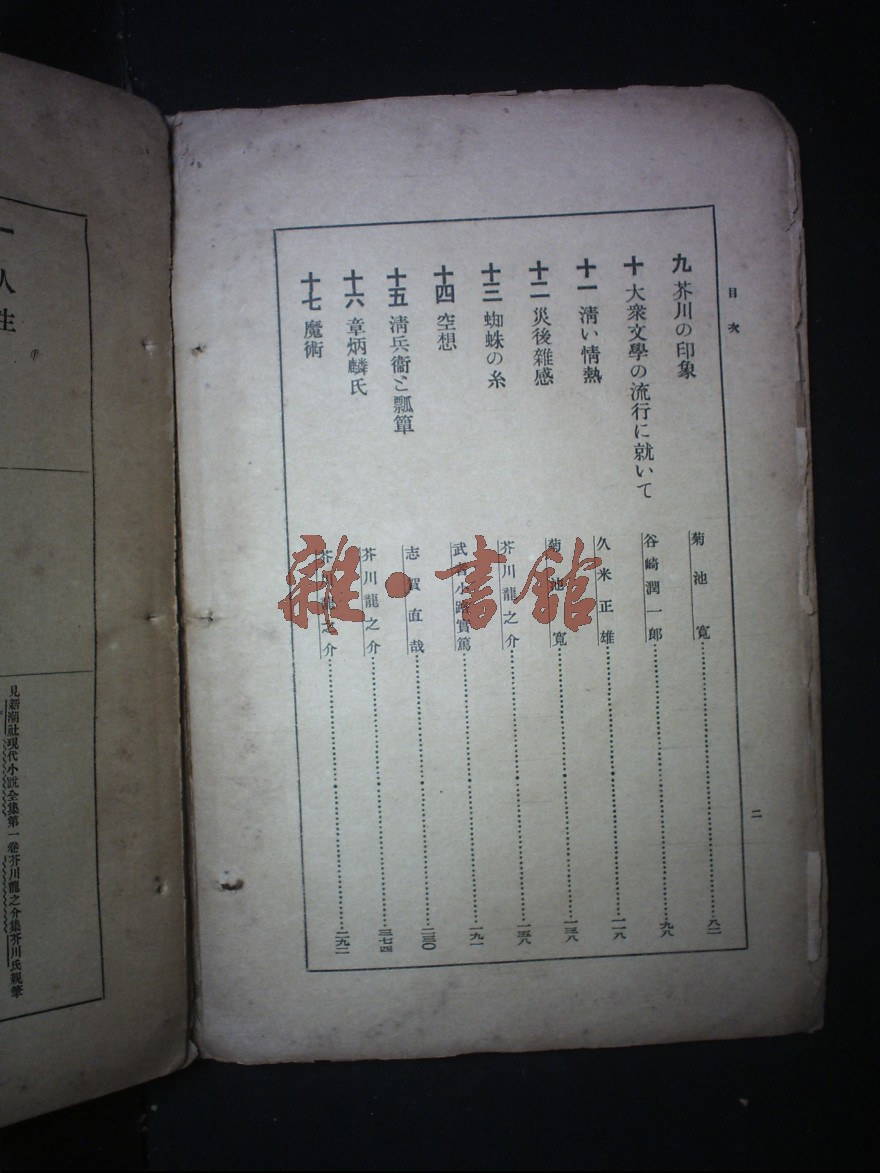 目次
九 芥川の印象 菊池寬……八二
十 大衆文學の流行に就いて 谷崎潤一郎……九八
十一 淸い情熱 久米正雄……一一八
十二 災後雜感 菊池寬……一三八
十三 蜘蛛の糸 芥川龍之介……一五八
十四 空想 武者小路實篤……一九一
十五 淸兵衞と瓢簞 志賀直哉……二三〇
十六 章炳麟氏 芥川龍之介……二七四
十七 魔術 芥川龍之介……二九二
二
一 人生
見新潮社現代小説全集第一卷芥川龍之介集芥川氏親筆
雜·書館